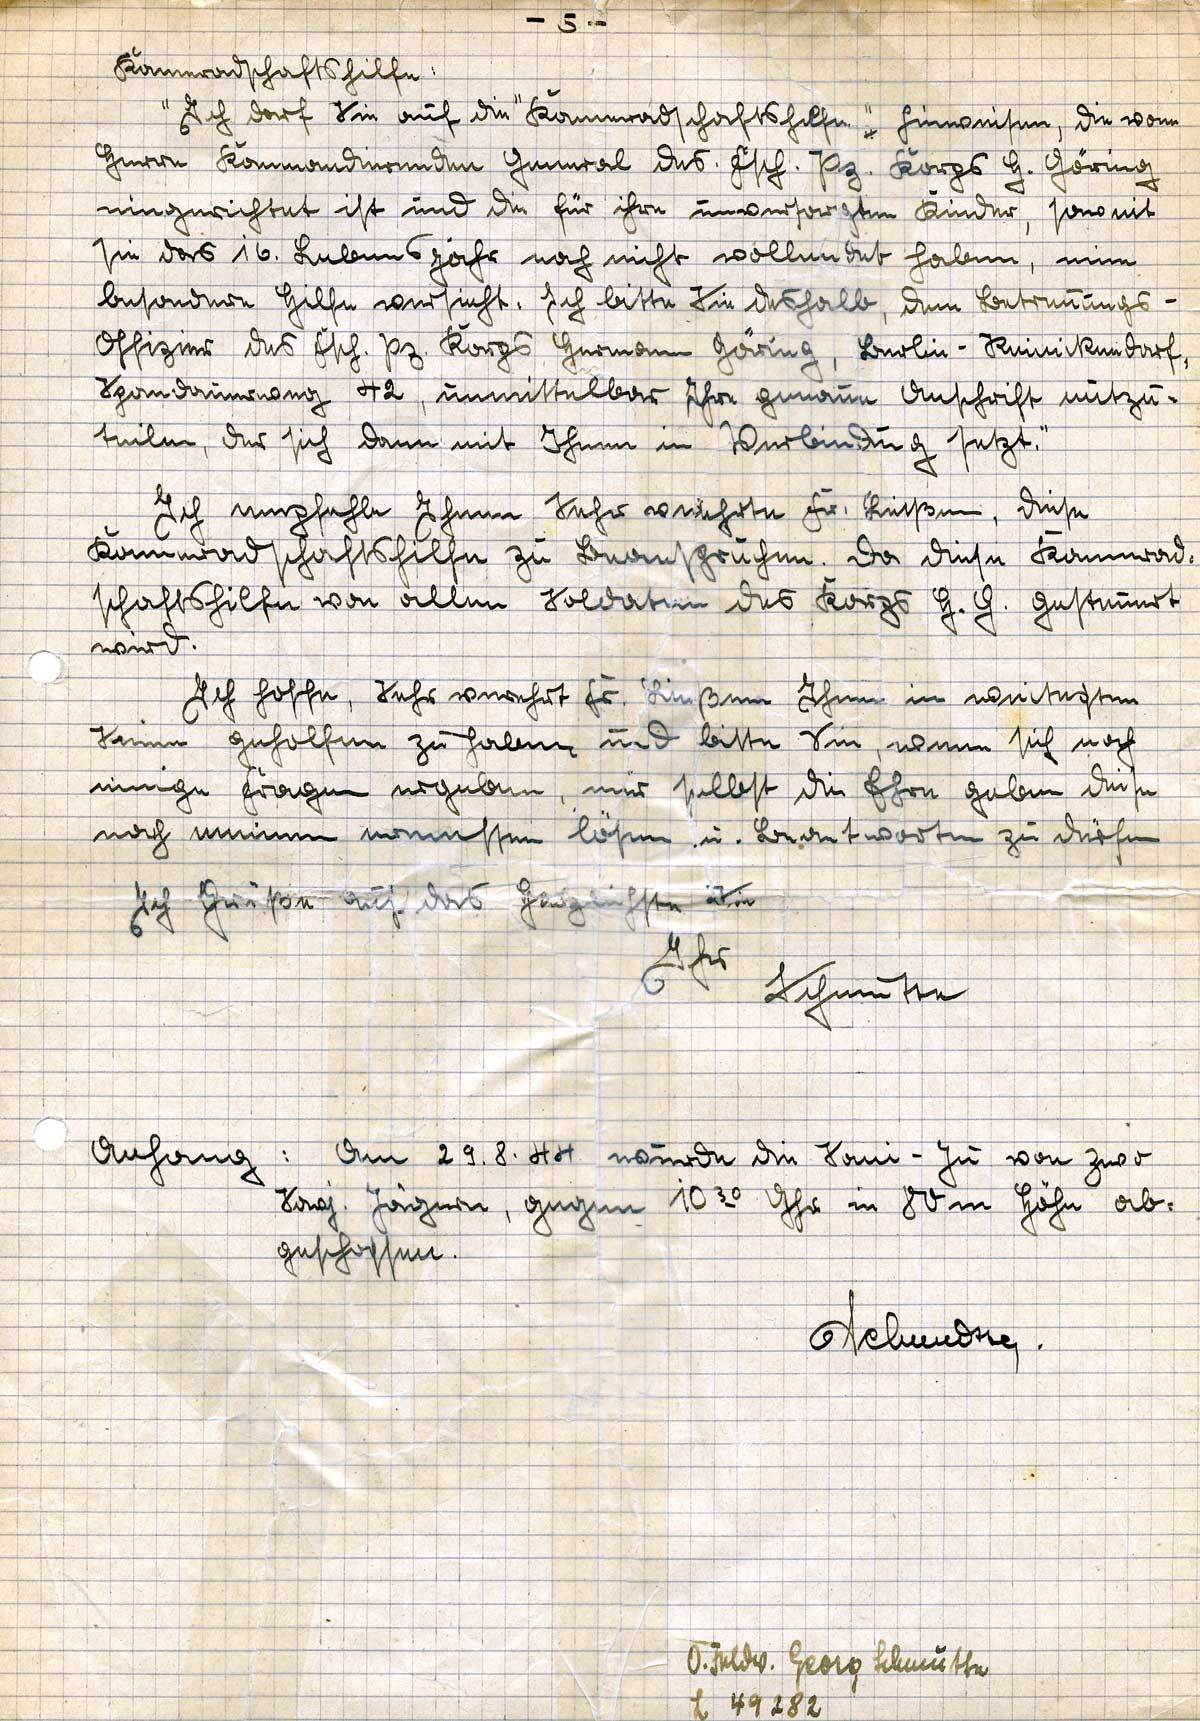 - 5 -
Kameradschaftshilfe:
"Ich darf Sie auf die "Kameradschaftshilfe" hinweisen, die vom
Herrn Kommandierenden General des. Fsch. Pz. Korps H. Göring
eingerichtet ist und die für ihre unversorgten Kinder, soweit
sie das 16. Lebensjahr noch nicht vollendet haben, eine
besondere Hilfe vorsieht. Ich bitte Sie deshalb, dem Betreuungs-
Offizier des Fsch. Pz. Korps Hermann Göring, Berlin-Reinickendorf,
Spandauerweg 42, unmittelbar Ihre genaue Anschrift mitzu-
teilen, der sich dann mit Ihnen in Verbindung setzt."
Ich empfehle Ihnen Sehr verehrte Fr. diese
Kameradschaftshilfe zu Beanspruchen. Da diese Kamerad-
schaftshilfe von allen Soldaten des Korps H. G. gesteuert
wird.
Ich hoffe, Sehr verehrt Fr. Ihnen in weitesten
Sinne geholfen zu haben, und bitte Sie, wenn sich noch
einige Fragen ergeben, mir selbst die Ehre geben diese
nach meinem ermessen lösen u. Beantworten zu dürfen
Ich Grüße auf das Herzlichste Sie
Ihr
Schmutte
Anhang: Am 29.8.44 wurde die Sani-Ju von zwo
Sowj. Jägern, gegen 10 30 Uhr in 80 m Höhe ab-
geschossen.
O. Feldw. Georg Schmutte
L 49282